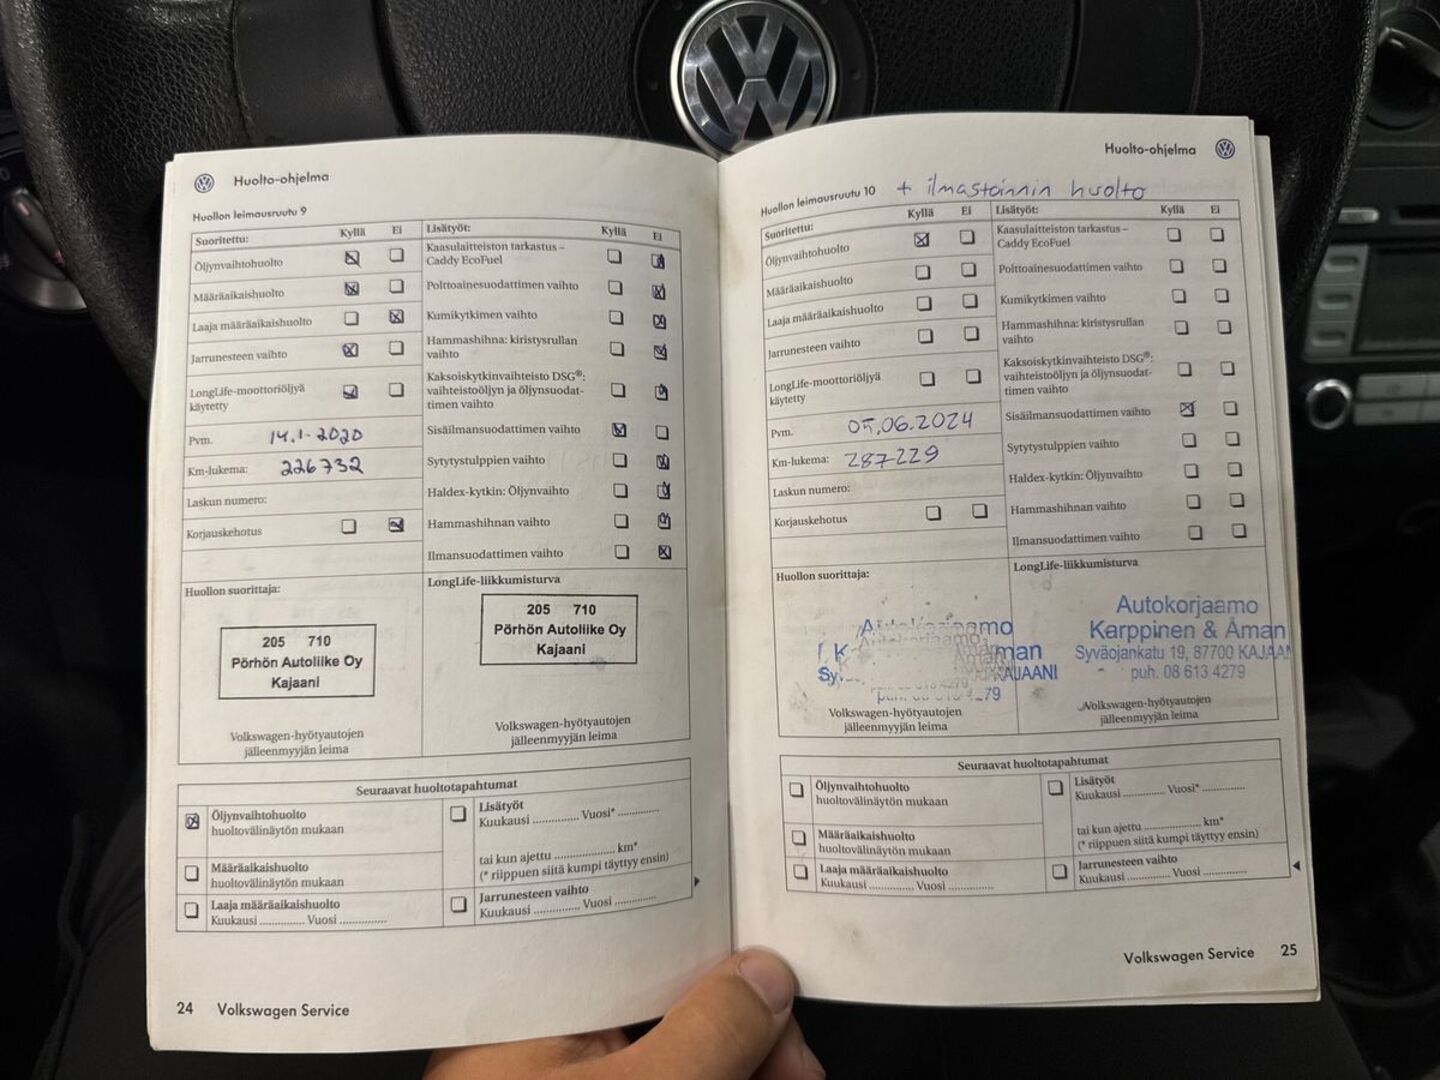 Huolto-ohjelma
Huollon leimausruutu 9
Suoritettu: Kyllä Ei
Öljynvaihtohuolto
Määräaikaishuolto
Laaja määräaikaishuolto
Jarrunesteen vaihto
LongLife-moottoriöljyä
käytetty
Pvm. 14.1.2020
Km-lukema: 226732
Laskun numero:
Korjauskehotus
Lisätyöt: Kyllä Ei
Kaasulaitteiston tarkastus –
Caddy EcoFuel
Polttoainesuodattimen vaihto
Kumikytkimen vaihto
Hammashihna: kiristysrullan
vaihto
Kaksoiskytkinvaihteisto DSG®:
vaihteistoöljyn ja öljynsuodat-
timen vaihto
Sisäilmansuodattimen vaihto
Sytytystulppien vaihto
Haldex-kytkin: Öljynvaihto
Hammashihnan vaihto
Ilmansuodattimen vaihto
Huollon suorittaja:
205 710
Pörhön Autoliike Oy
Kajaani
Volkswagen-hyötyautojen
jälleenmyyjän leima
LongLife-liikkumisturva
205 710
Pörhön Autoliike Oy
Kajaani
Volkswagen-hyötyautojen
jälleenmyyjän leima
Seuraavat huoltotapahtumat
Öljynvaihtohuolto
huoltovälinäytön mukaan
Määräaikaishuolto
huoltovälinäytön mukaan
Laaja määräaikaishuolto
Kuukausi ............. Vuosi ...............
Lisätyöt
Kuukausi .............. Vuosi* .............
tai kun ajettu .................... km*
(* riippuen siitä kumpi täyttyy ensin)
Jarrunesteen vaihto
Kuukausi .............. Vuosi .............
24 Volkswagen Service
Huolto-ohjelma
Huollon leimausruutu 10 + ilmastoinnin huolto
Suoritettu: Kyllä Ei
Öljynvaihtohuolto
Määräaikaishuolto
Laaja määräaikaishuolto
Jarrunesteen vaihto
LongLife-moottoriöljyä
käytetty
Pvm. 05.06.2024
Km-lukema: 287229
Laskun numero:
Korjauskehotus
Lisätyöt: Kyllä Ei
Kaasulaitteiston tarkastus –
Caddy EcoFuel
Polttoainesuodattimen vaihto
Kumikytkimen vaihto
Hammashihna: kiristysrullan
vaihto
Kaksoiskytkinvaihteisto DSG®:
vaihteistoöljyn ja öljynsuodat-
timen vaihto
Sisäilmansuodattimen vaihto
Sytytystulppien vaihto
Haldex-kytkin: Öljynvaihto
Hammashihnan vaihto
Ilmansuodattimen vaihto
Huollon suorittaja:
Volkswagen-hyötyautojen
jälleenmyyjän leima
LongLife-liikkumisturva
Autokorjaamo
Karppinen & Åman
Syväojankatu 19, 87700 KAJAAN
puh. 08 613 4279
Volkswagen-hyötyautojen
jälleenmyyjän leima
Seuraavat huoltotapahtumat
Öljynvaihtohuolto
huoltovälinäytön mukaan
Määräaikaishuolto
huoltovälinäytön mukaan
Laaja määräaikaishuolto
Kuukausi ............. Vuosi .............
Lisätyöt
Kuukausi ............ Vuosi* ............
tai kun ajettu .................. km*
(* riippuen siitä kumpi täyttyy ensin)
Jarrunesteen vaihto
Kuukausi ............ Vuosi ............
Volkswagen Service 25